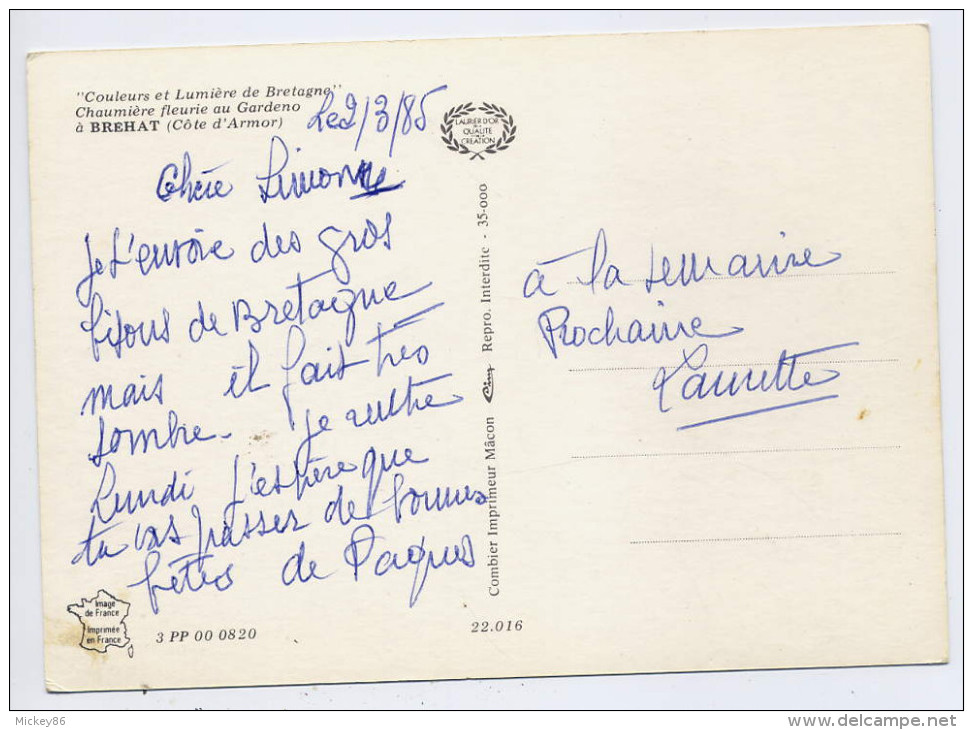 "Couleurs et Lumière de Bretagne"
Chaumière fleurie au Gardeno
à BREHAT (Côte d'Armor)
Le 2/3/85
LAURIER D'OR
DE LA
QUALITÉ
CREATION
Chère Simonne
Je t'envoie des gros
bisous de Bretagne
mais il fait très
sombre - Je rentre
Lundi J'espère que
tu vas passer de bonnes
fêtes de Paques
à la semaine
Prochaine
Laurette
Combier Imprimeur Mâcon Cim Repro. Interdite - 35-000
Image
de France
Imprimée
en France
3 PP 00 0820
22.016
Mickey86
http://www.delcampe.net